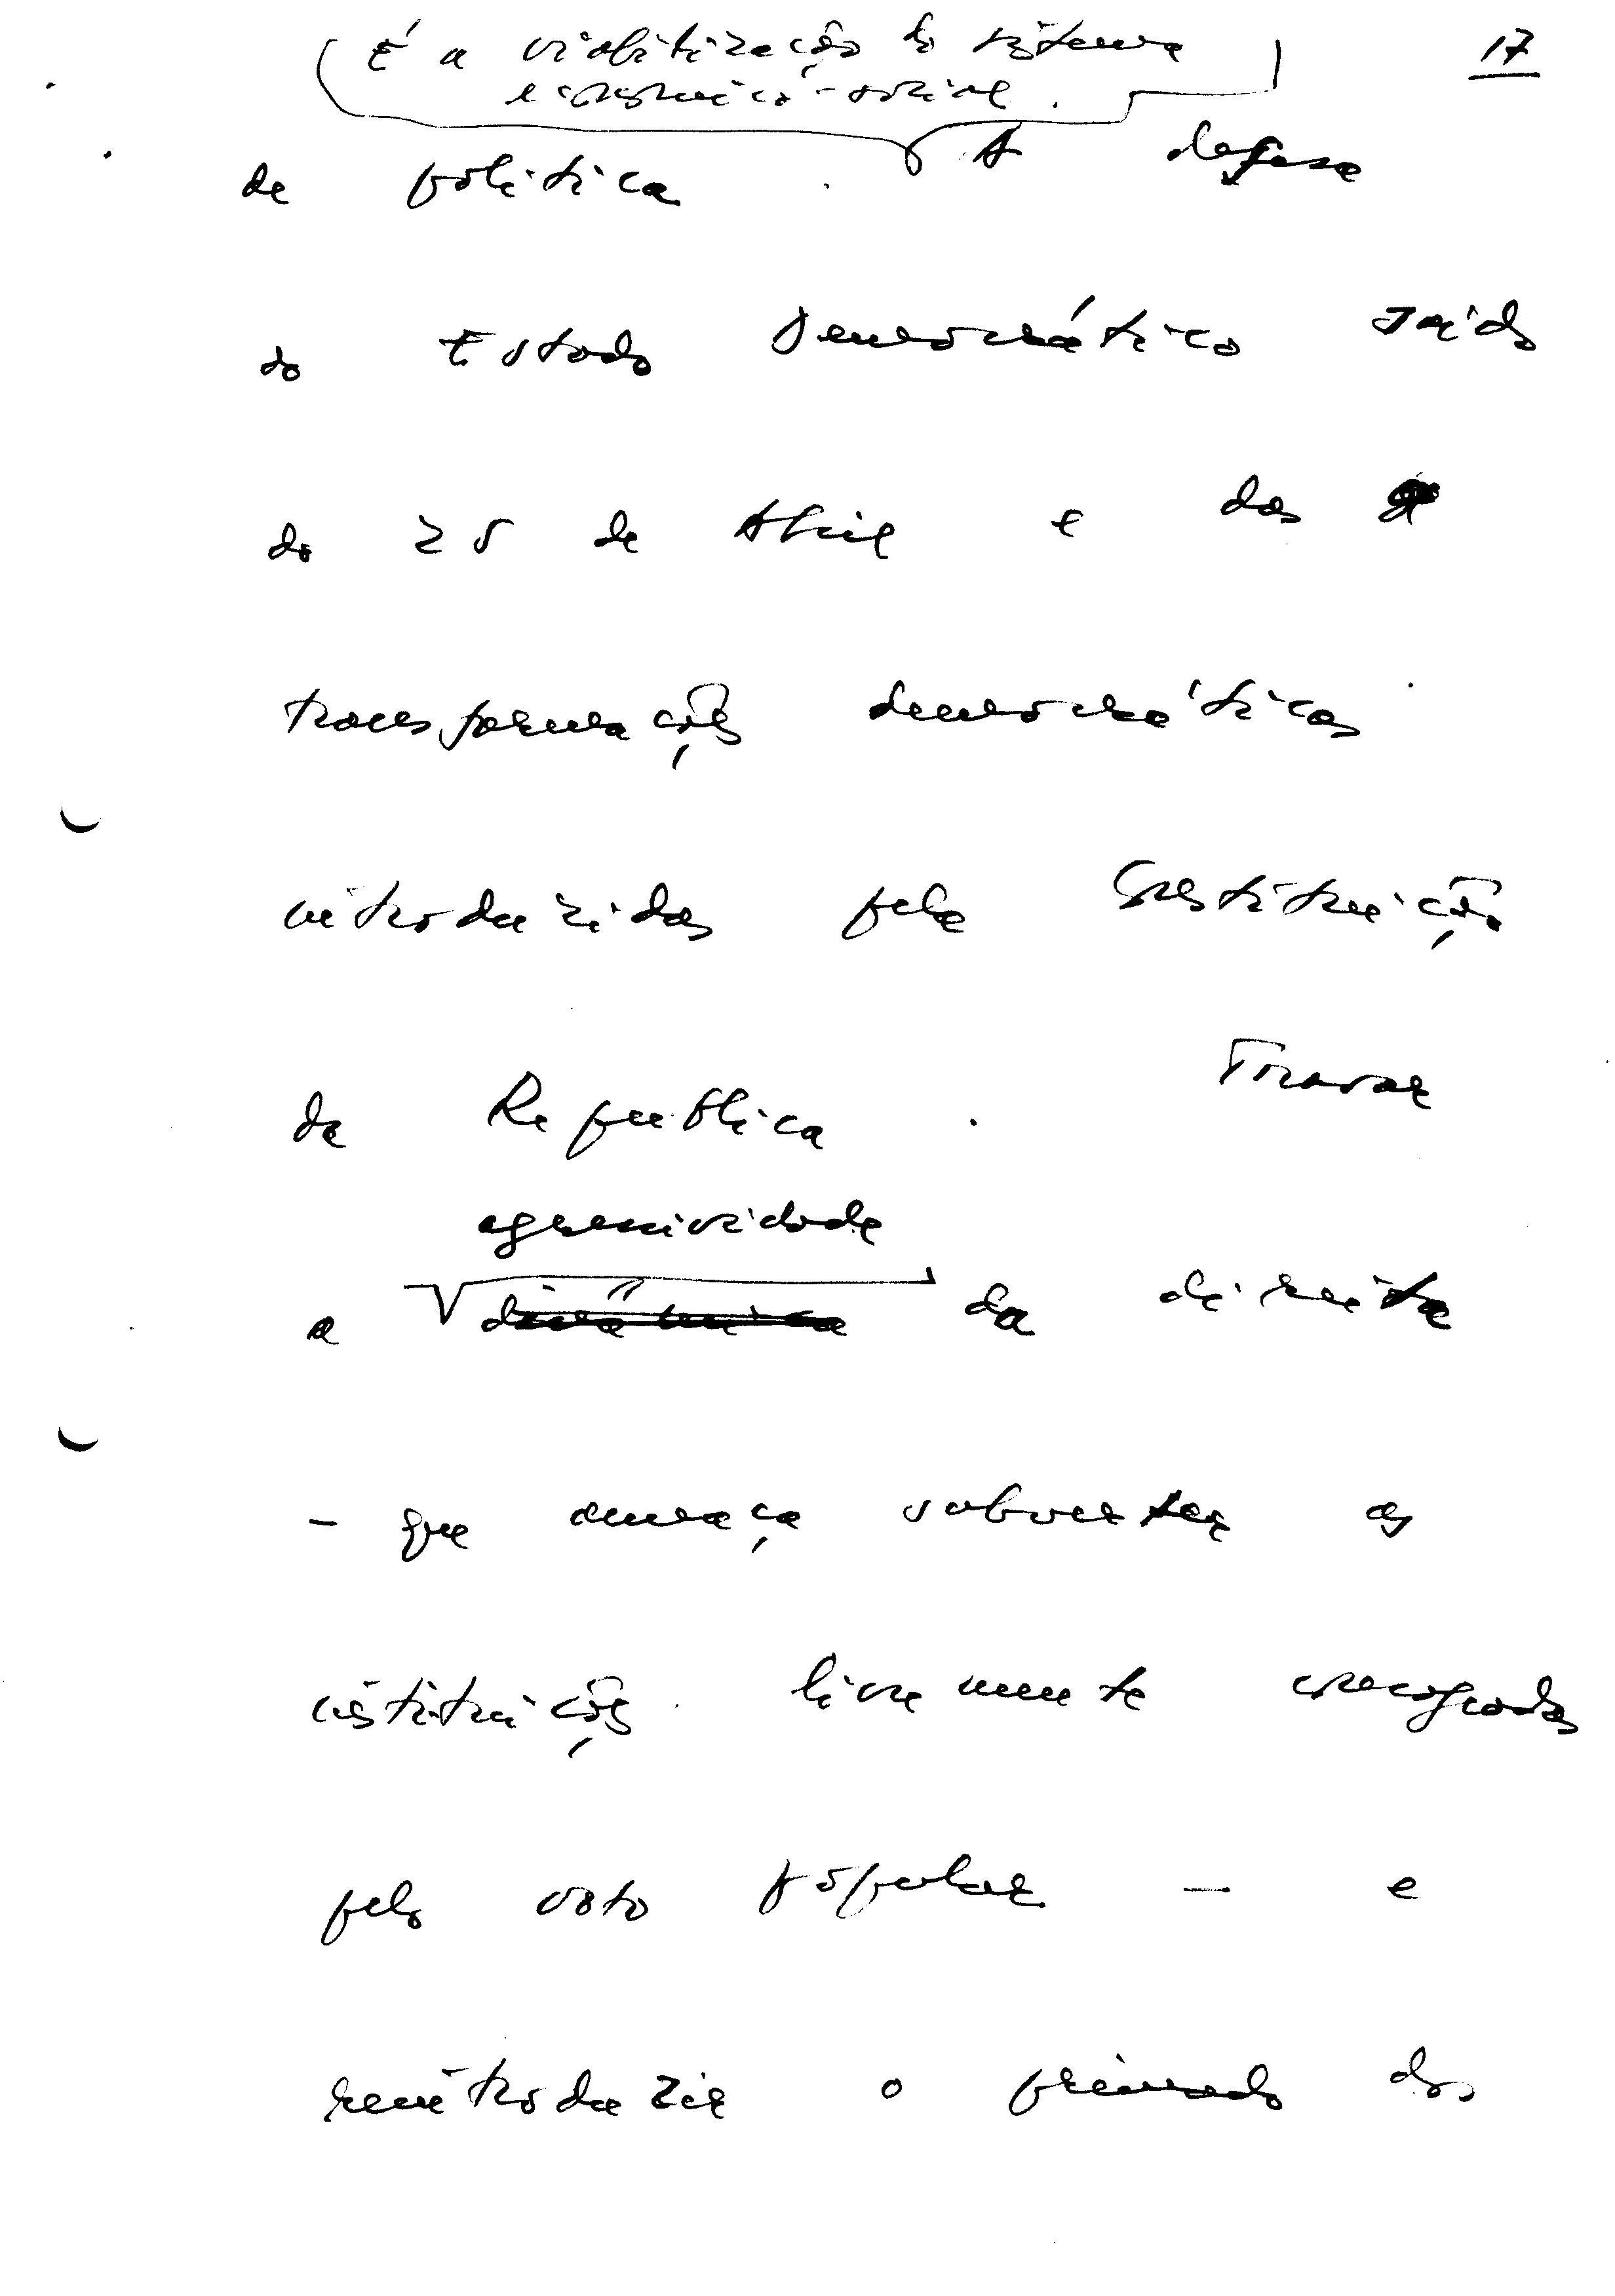 17
É a viabilização do sistema
económico-social.
da política. A defesa
do Estado Democrático saído
do 25 de Abril e das
transformações democráticas
introduzidas pela Constituição
da República. Travar
agressividade
a dinâmica da direita
- que ameaça subverter as
instituições livremente consagradas
pelo voto popular - e
reintroduzir o primado dos